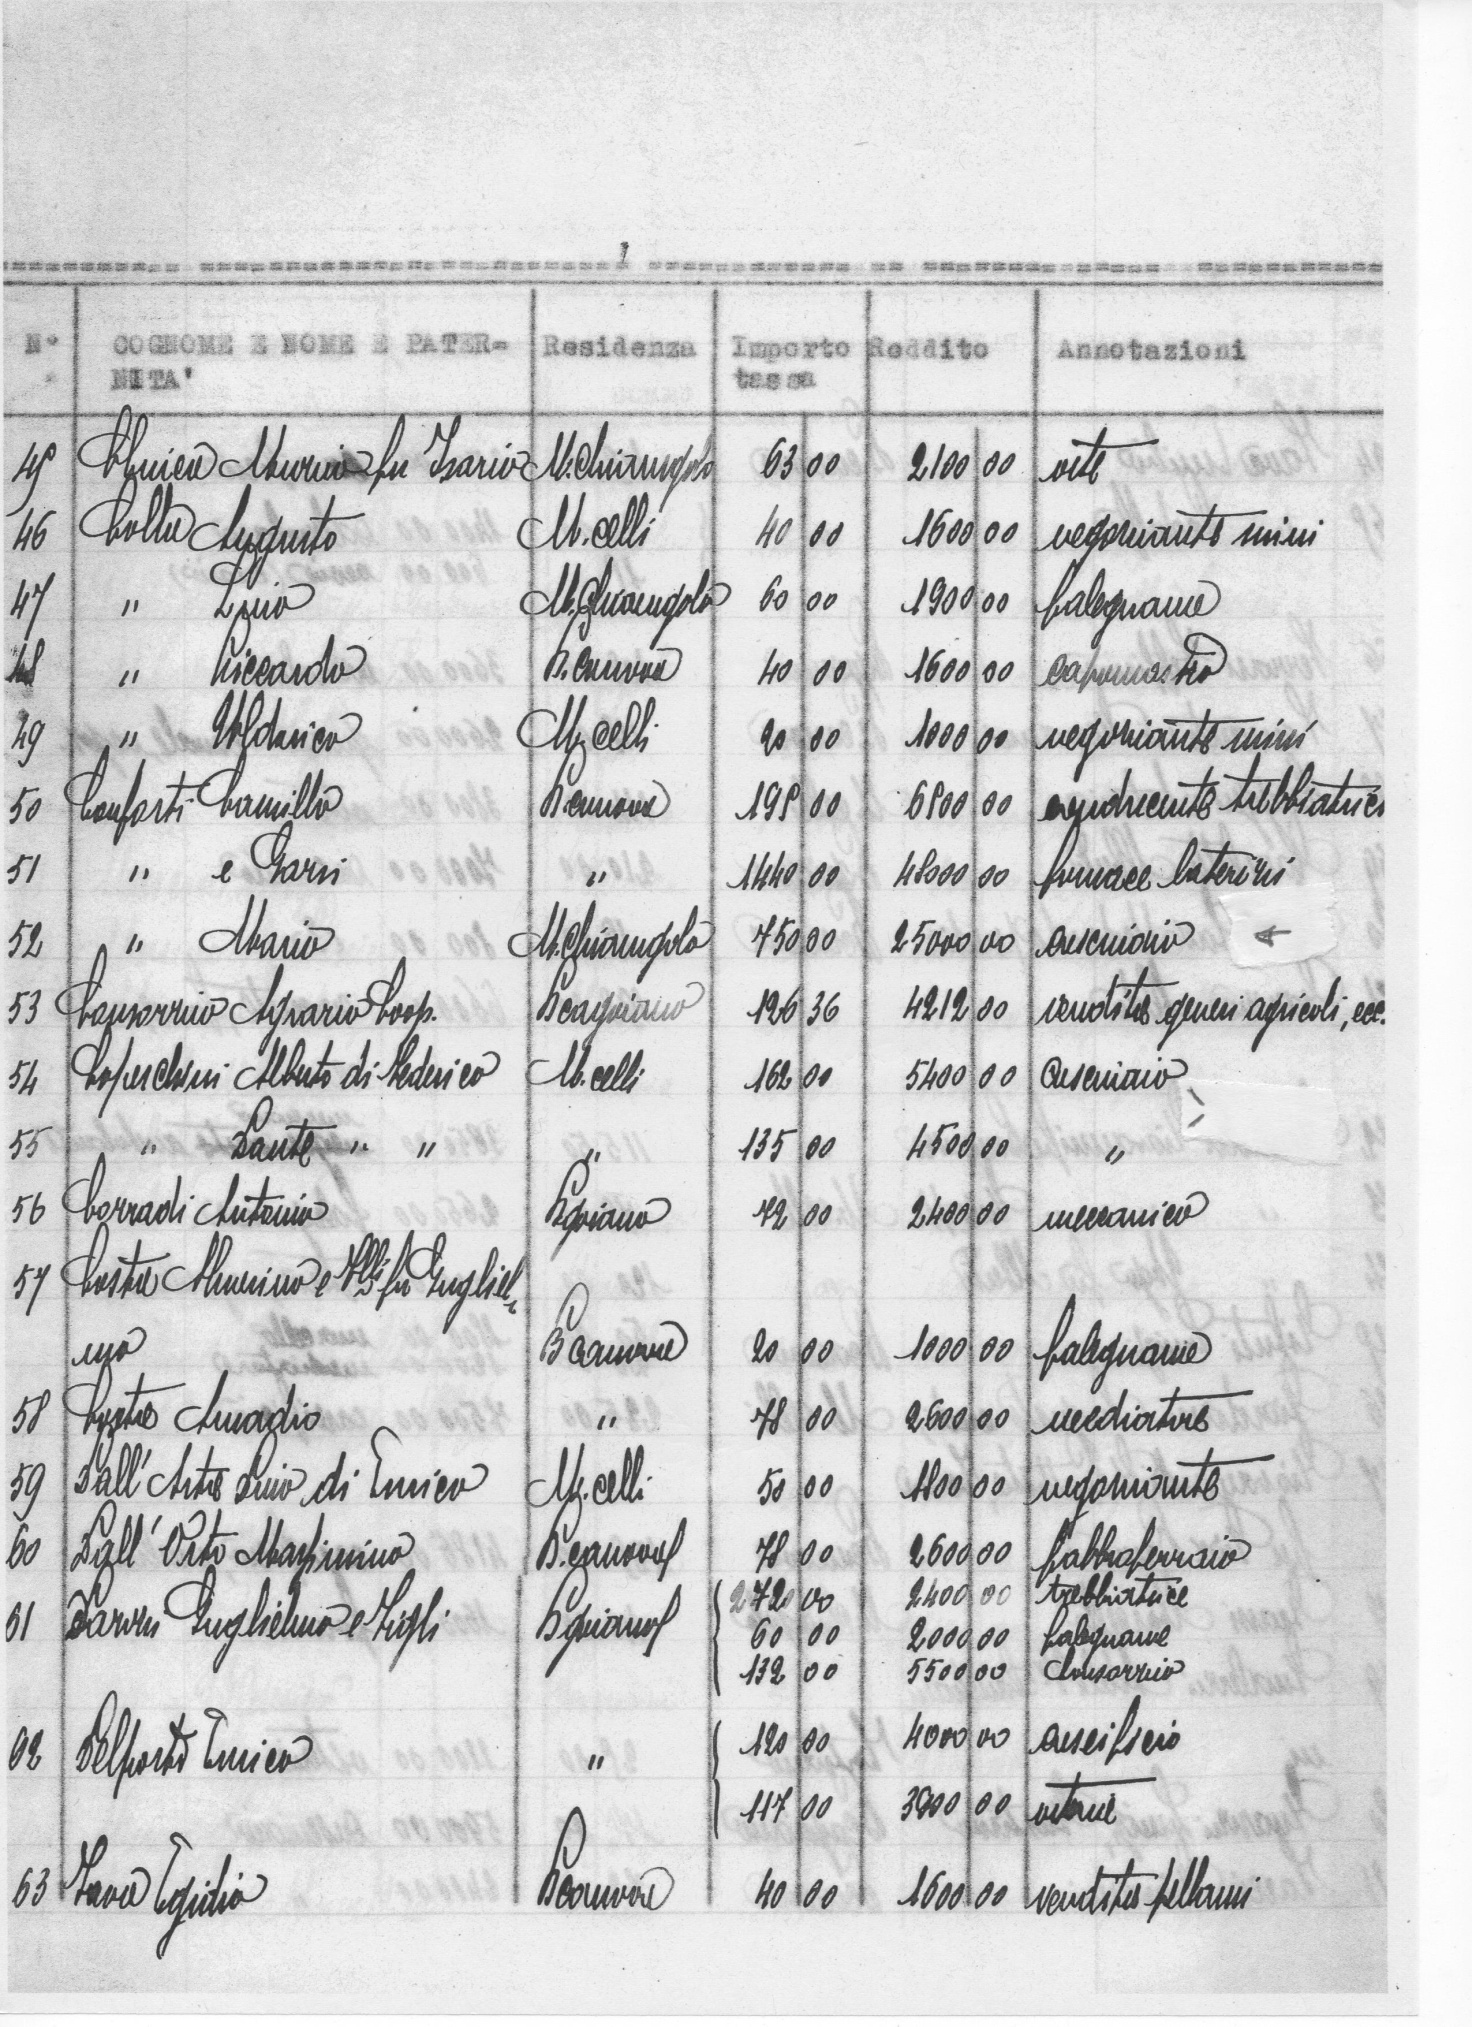 N° COGNOME E NOME E PATER= Residenza Importo Reddito Annotazioni
NITA' tassa
45 fu Ilario M.Chiarugolo 63 00 2100 00 oste
46 Colla Augusto M.celli 40 00 1600 00 negoziante vini
47 " Licio M.Chiarugolo 60 00 1900 00 falegname
48 " Riccardo B.canova 40 00 1600 00 capomastro
49 " Ulderico M.celli 20 00 1000 00 negoziante vini
50 Conforti Camillo B.canova 198 00 6800 00 conducente trebbiatrici
51 " e Garsi " 1440 00 48000 00 fornace laterizi
52 " Mario M.Chiarugolo 750 00 25000 00 caseario
53 Consorzio Agrario Coop. 126 36 4212 00 vendita generi agricoli, ecc.
54 Coperchini Alberto di Federico M.celli 162 00 5400 00 casearo
55 " Dante " " " 135 00 4500 00 "
56 Corradi Antonio 72 00 2400 00 meccanico
57 Costa e fu Gugliel=
mo B canova 20 00 1000 00 falegname
58 Costa Amadio " 78 00 2600 00 mediatore
59 Dall' Asta Lino di Enrico M.celli 50 00 1800 00 negoziante
60 Dall' Orto Massimino B.canova 78 00 2600 00 fabbroferraio
61 Guglielmo e Figli 272 00 2400 00 trebbiatrice
60 00 2000 00 falegname
132 00 5500 00 Consorzio
62 Delporto Enrico " 120 00 4000 00 caseificio
117 00 3900 00
63 Fava Egidio B canova 40 00 1600 00 vendita pellami